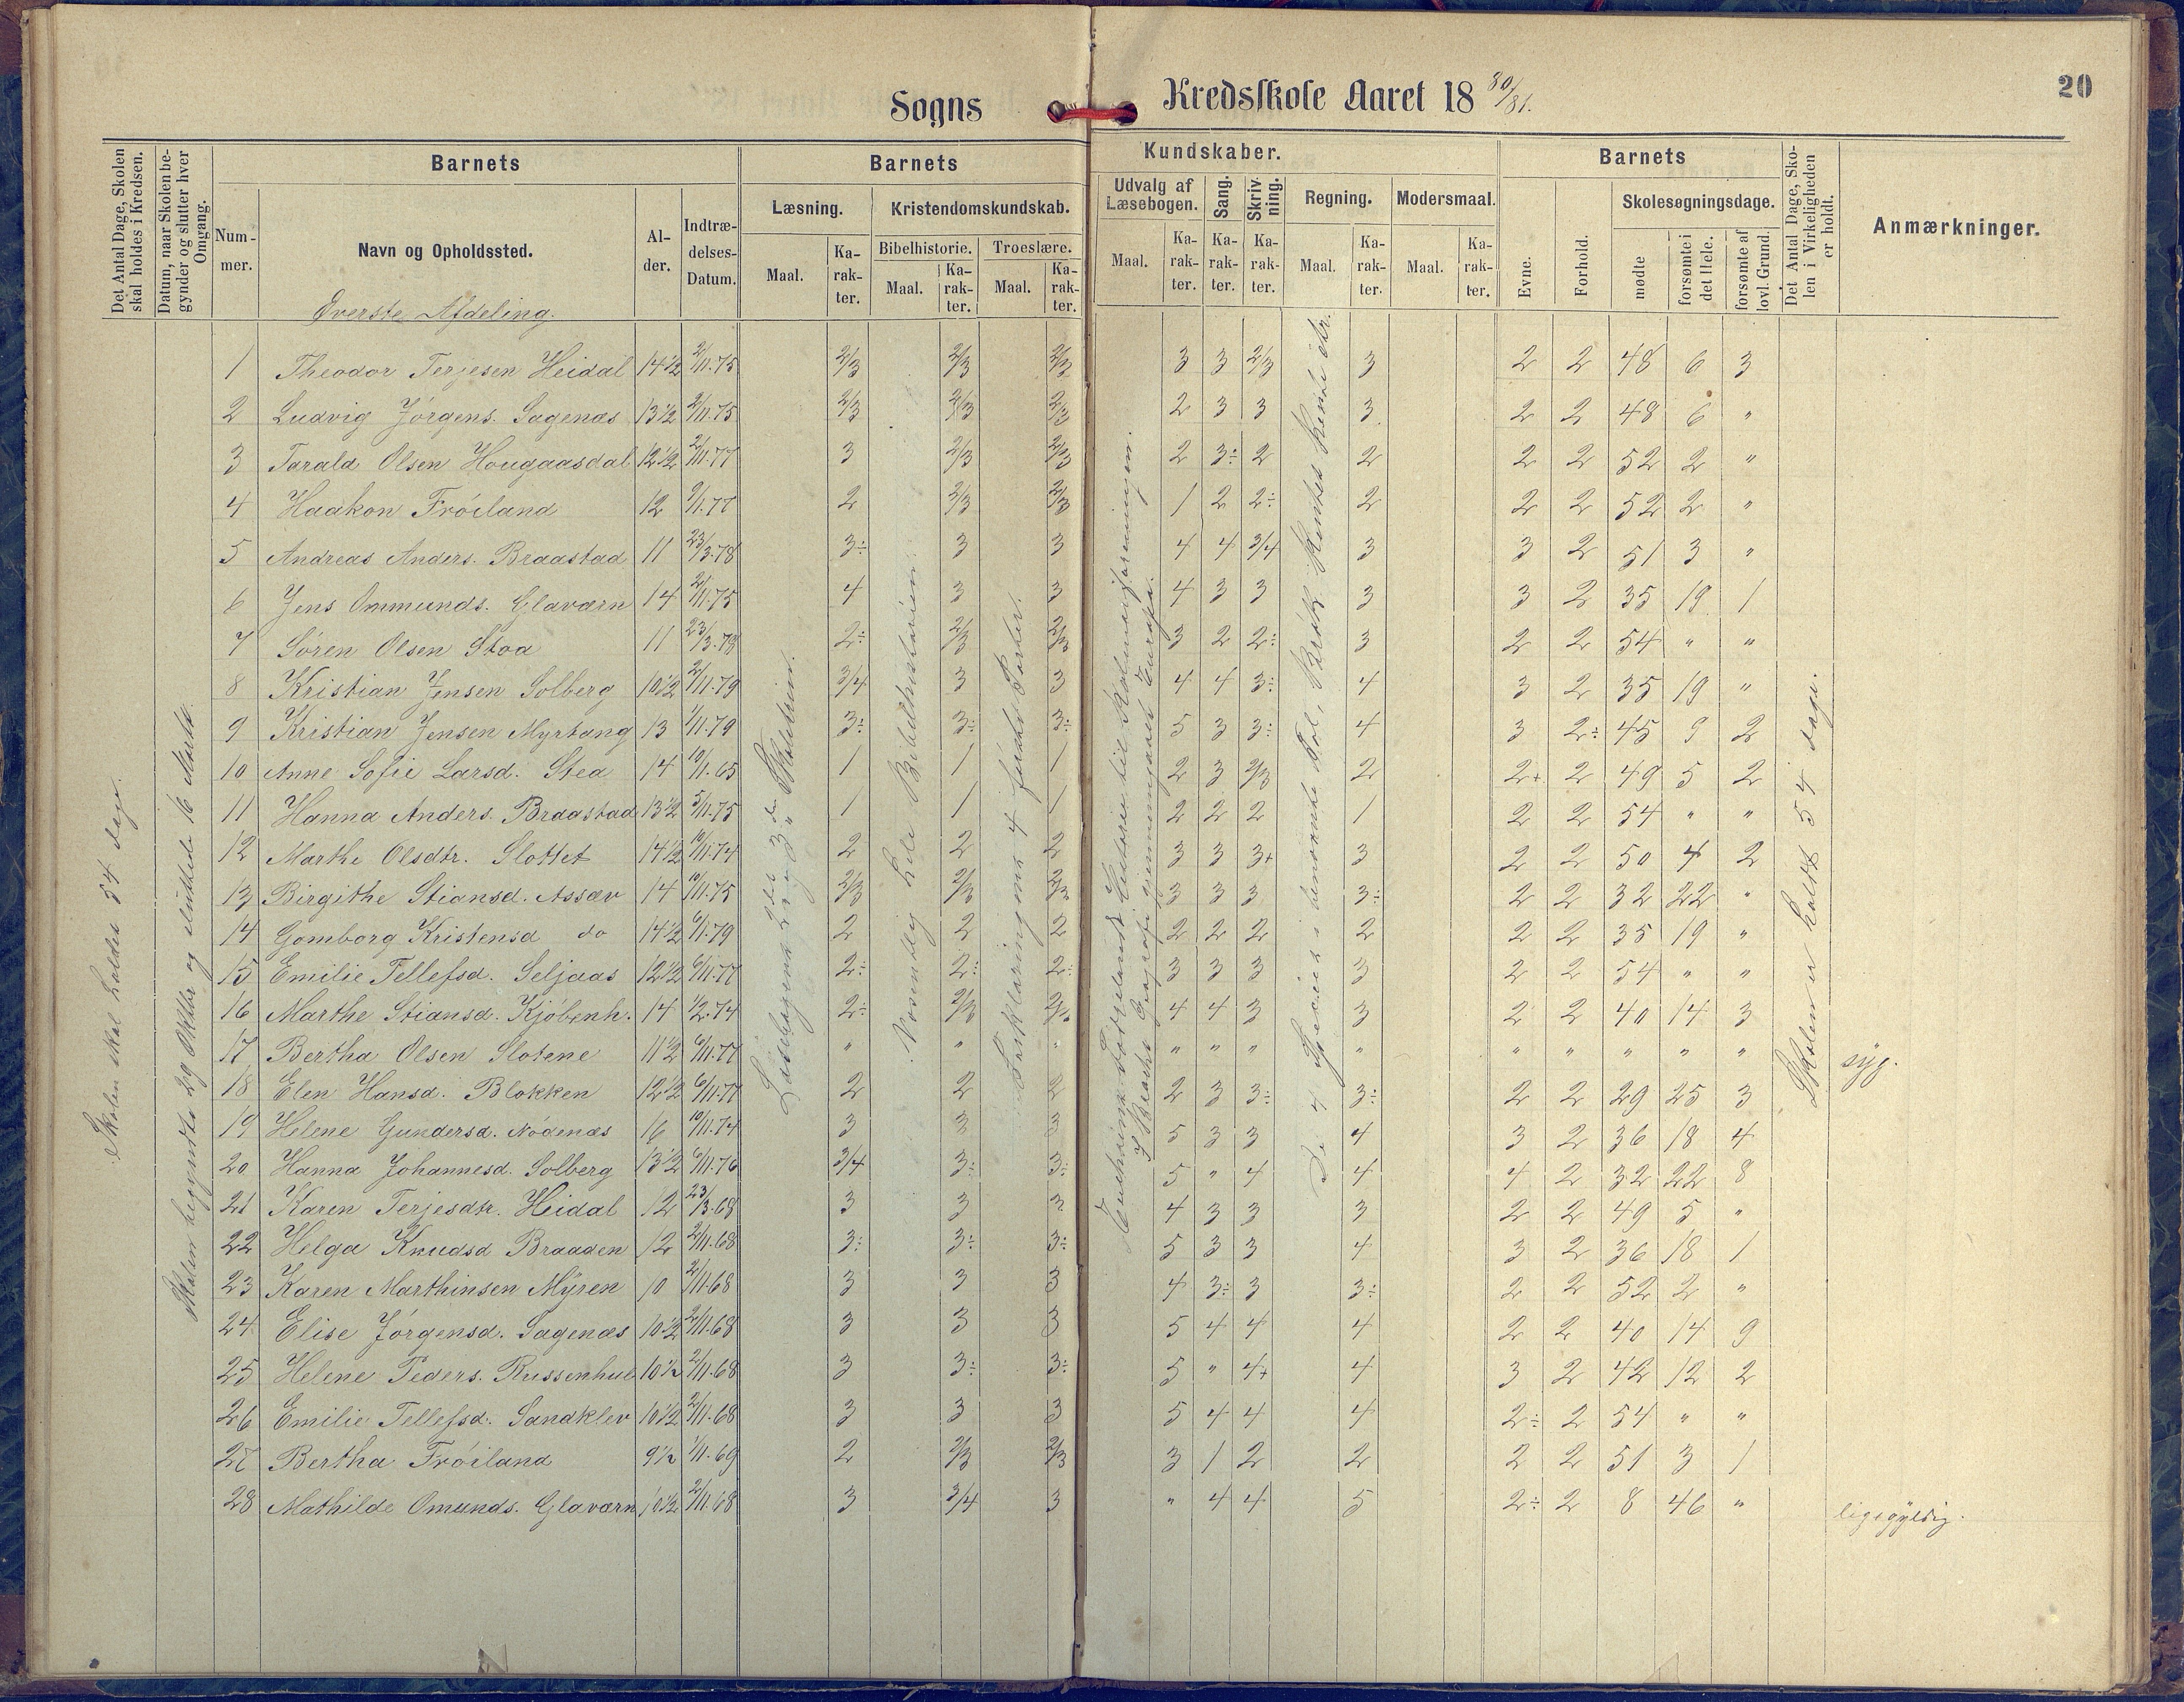 Sogns Kredsskole Aaret 18 80/81.
20
Det Antal Dage, Skolen skal holdes i Kredsen.
Datum, naar Skolen begynder og slutter hver Omgang.
Barnets
Nummer.
Navn og Opholdssted.
Alder.
Indtrædelses-Datum.
Barnets Kundskaber.
Læsning.
Maal.
Karakter.
Kristendomskundskab.
Bibelhistorie.
Maal.
Karakter.
Troeslære.
Maal.
Karakter.
Udvalg af Læsebogen.
Maal.
Karakter.
Sang.
Karakter.
Skrivning.
Karakter.
Regning.
Maal.
Karakter.
Modersmaal.
Maal.
Karakter.
Barnets
Evne.
Forhold.
Skolesøgningsdage.
mødte
forsømte i det Hele.
forsømte af lovl. Grund.
Det Antal Dage, Skolen i Virkeligheden er holdt.
Anmærkninger.
Øverste Afdeling.
Skolen skal holdes 54 dage.
Skolen begyndte 29 Oktbr og sluttede 16 Marts.
Forklaringens 4 første Parter.
Skolen er holdt 54 dage.
1 Theodor Terjesen Heidal 14½ 2/11.75 2/3 2/3 2/3 3 3 2/3 3 2 2 48 6 3
2 Ludvig Jörgens. Sagenæs 13½ 2/11.75 2/3 2/3 2/3 2 3 3 3 2 2 48 6 "
3 Tarald Olsen Hougaasdal 12½ 2/11.77 3 2/3 2/3 2 3÷ 2 2 2 2 52 2 "
4 Haakon Fröiland 12 2 2/3 2/3 1 2 2÷ 2 2 2 52 2 "
5 Andreas Anders. Braastad 11 23/3.78 3÷ 3 3 4 4 3/4 3 3 2 51 3 "
6 Jens Ommunds. Glaværn 14 2/11.75 4 3 3 4 3 3 3 3 2 35 19 1
7 Sören Olsen Stoa 11 23/3.78 2÷ 2/3 2/3 3 2 2÷ 3 2 2 54 " "
8 Kristian Jensen Solberg 10½ 2/11.79 3/4 3 3 4 4 3÷ 4 3 2 35 19 "
9 Kristian Jensen Myrtang 13 1/11.79 3÷ 3÷ 3÷ 5 3 3÷ 4 3 2÷ 45 9 2
10 Anne Sofie Larsd. Stea 14 10/11.65 1 1 1 2 3 2/3 2 2+ 2 49 5 2
11 Hanna Anders. Braastad 13½ 5/11.75 1 1 1 2 2 2 1 2 2 54 " "
12 Marthe Olsdtr. Slottet 14½ 10/11.74 2 2 2 3 3 3+ 3 2 2 50 4 2
13 Birgithe Stiansd. Assæv 14 10/11.75 2/3 2/3 2/3 3 3 3 3÷ 2 2 32 22 "
14 Gomborg Kristensd do 14½ 6/11.79 2 2 2 2 2 2 2 2 2 35 19 "
15 Emilie Tellefsd. Seljaas 12½ 6/11.77 2÷ 2÷ 2÷ 3 3 3 3 2 2 54 " "
16 Marthe Stiansd. Kjöbenh. 14 1/2.74 2÷ 2/3 4 4 3 3 2 2 40 14 3
17 Bertha Olsen Slotene 11½ 6/11.77 " " " " " " " " " " " " syg.
18 Elen Hansd. Blokken 12½ 6/11.77 2 2 2 2 3 3÷ 3÷ 2 2 29 25 3
19 Helene Gundersd. Nödenæs 16 10/11.74 3 3 3 5 3 3 4 3 2 36 18 4
20 Hanna Johannesd. Solberg 13½ 6/11.76 3/4 3÷ 3÷ 5 " 4 4 4 2 32 22 8
21 Karen Terjesdtr. Heidal 12 23/3.68 3 3 3 4 3 3 3 2 2 49 5 "
22 Helga Knudsd Braaden 12 2/11.68 3÷ 3÷ 3÷ 5 3 3 4 3 2 36 18 1
23 Karen Marthinsen Myren 10 2/11.68 3 3 3 4 3÷ 3 3÷ 2 2 52 2 "
24 Elise Jörgensd. Sagenæs 10½ 2/11.68 3 3 3 5 4 4 4 2 2 40 14 9
25 Helene Peders. Russenhul 10½ 2/11.68 3 3÷ 3÷ 5 " 4+ 4 3 2 42 12 2
26 Emilie Tellefsd. Sandklev 10½ 2/11.68 3 3 3 5 4 4 4 2÷ 2 54 " "
27 Bertha Fröiland 9½ 1/11.69 2 2/3 2/3 3 1 2 2 2 2 51 3 1
28 Mathilde Omunds. Glaværn 10½ 2/11.68 3 3/4 3 " 4 4 5 2÷ 2 8 46 " ligegyldig.